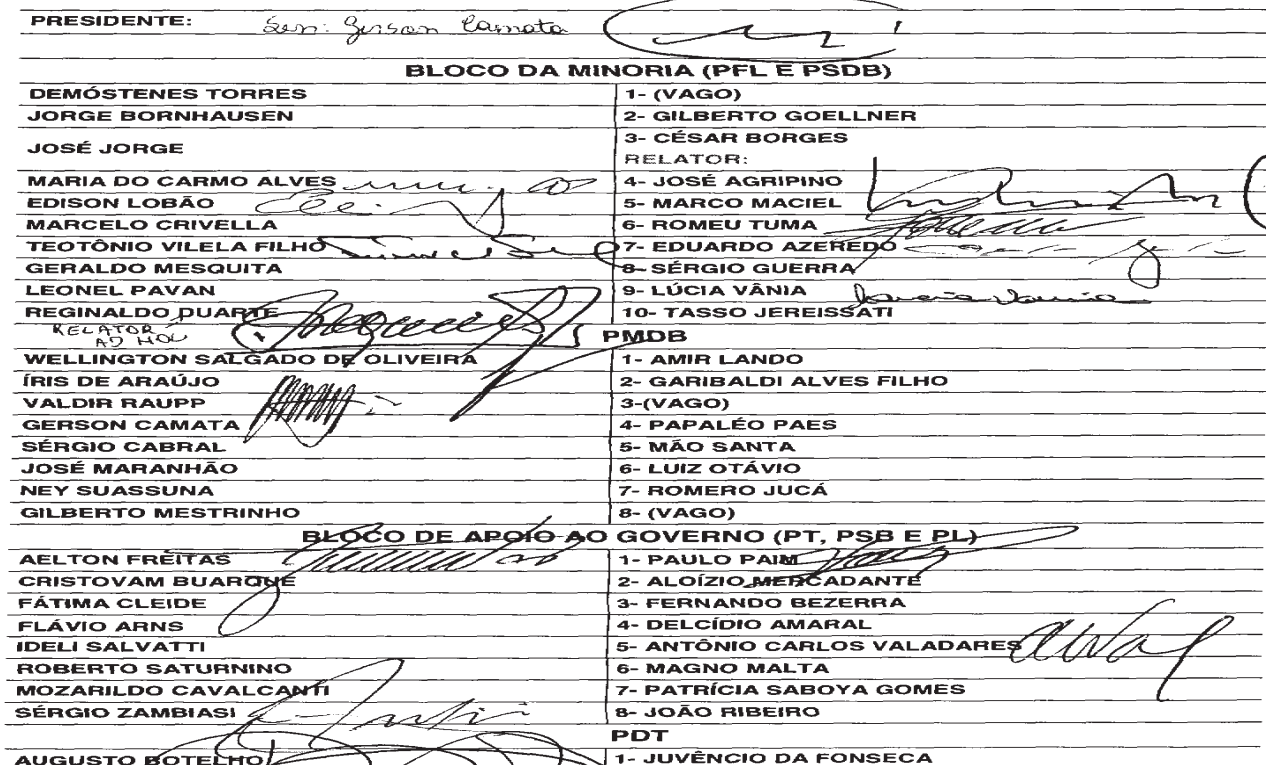 PRESIDENTE: Sen. Gerson Camata
BLOCO DA MINORIA (PFL E PSDB)
DEMÓSTENES TORRES 1- (VAGO)
JORGE BORNHAUSEN 2- GILBERTO GOELLNER
JOSÉ JORGE 3- CÉSAR BORGES
RELATOR:
MARIA DO CARMO ALVES 4- JOSÉ AGRIPINO
EDISON LOBÃO 5- MARCO MACIEL
MARCELO CRIVELLA 6- ROMEU TUMA
TEOTÔNIO VILELA FILHO 7- EDUARDO AZEREDO
GERALDO MESQUITA 8- SÉRGIO GUERRA
LEONEL PAVAN 9- LÚCIA VÂNIA Lucia Vania
REGINALDO DUARTE 10- TASSO JEREISSATI
RELATOR
AD HOC
PMDB
WELLINGTON SALGADO DE OLIVEIRA 1- AMIR LANDO
ÍRIS DE ARAÚJO 2- GARIBALDI ALVES FILHO
VALDIR RAUPP 3-(VAGO)
GERSON CAMATA 4- PAPALÉO PAES
SÉRGIO CABRAL 5- MÃO SANTA
JOSÉ MARANHÃO 6- LUIZ OTÁVIO
NEY SUASSUNA 7- ROMERO JUCÁ
GILBERTO MESTRINHO 8- (VAGO)
BLOCO DE APOIO AO GOVERNO (PT, PSB E PL)
AELTON FREITAS 1- PAULO PAIM
CRISTOVAM BUARQUE 2- ALOÍZIO MERCADANTE
FÁTIMA CLEIDE 3- FERNANDO BEZERRA
FLÁVIO ARNS 4- DELCÍDIO AMARAL
IDELI SALVATTI 5- ANTÔNIO CARLOS VALADARES
ROBERTO SATURNINO 6- MAGNO MALTA
MOZARILDO CAVALCANTI 7- PATRÍCIA SABOYA GOMES
SÉRGIO ZAMBIASI 8- JOÃO RIBEIRO
PDT
AUGUSTO BOTELHO 1- JUVÊNCIO DA FONSECA